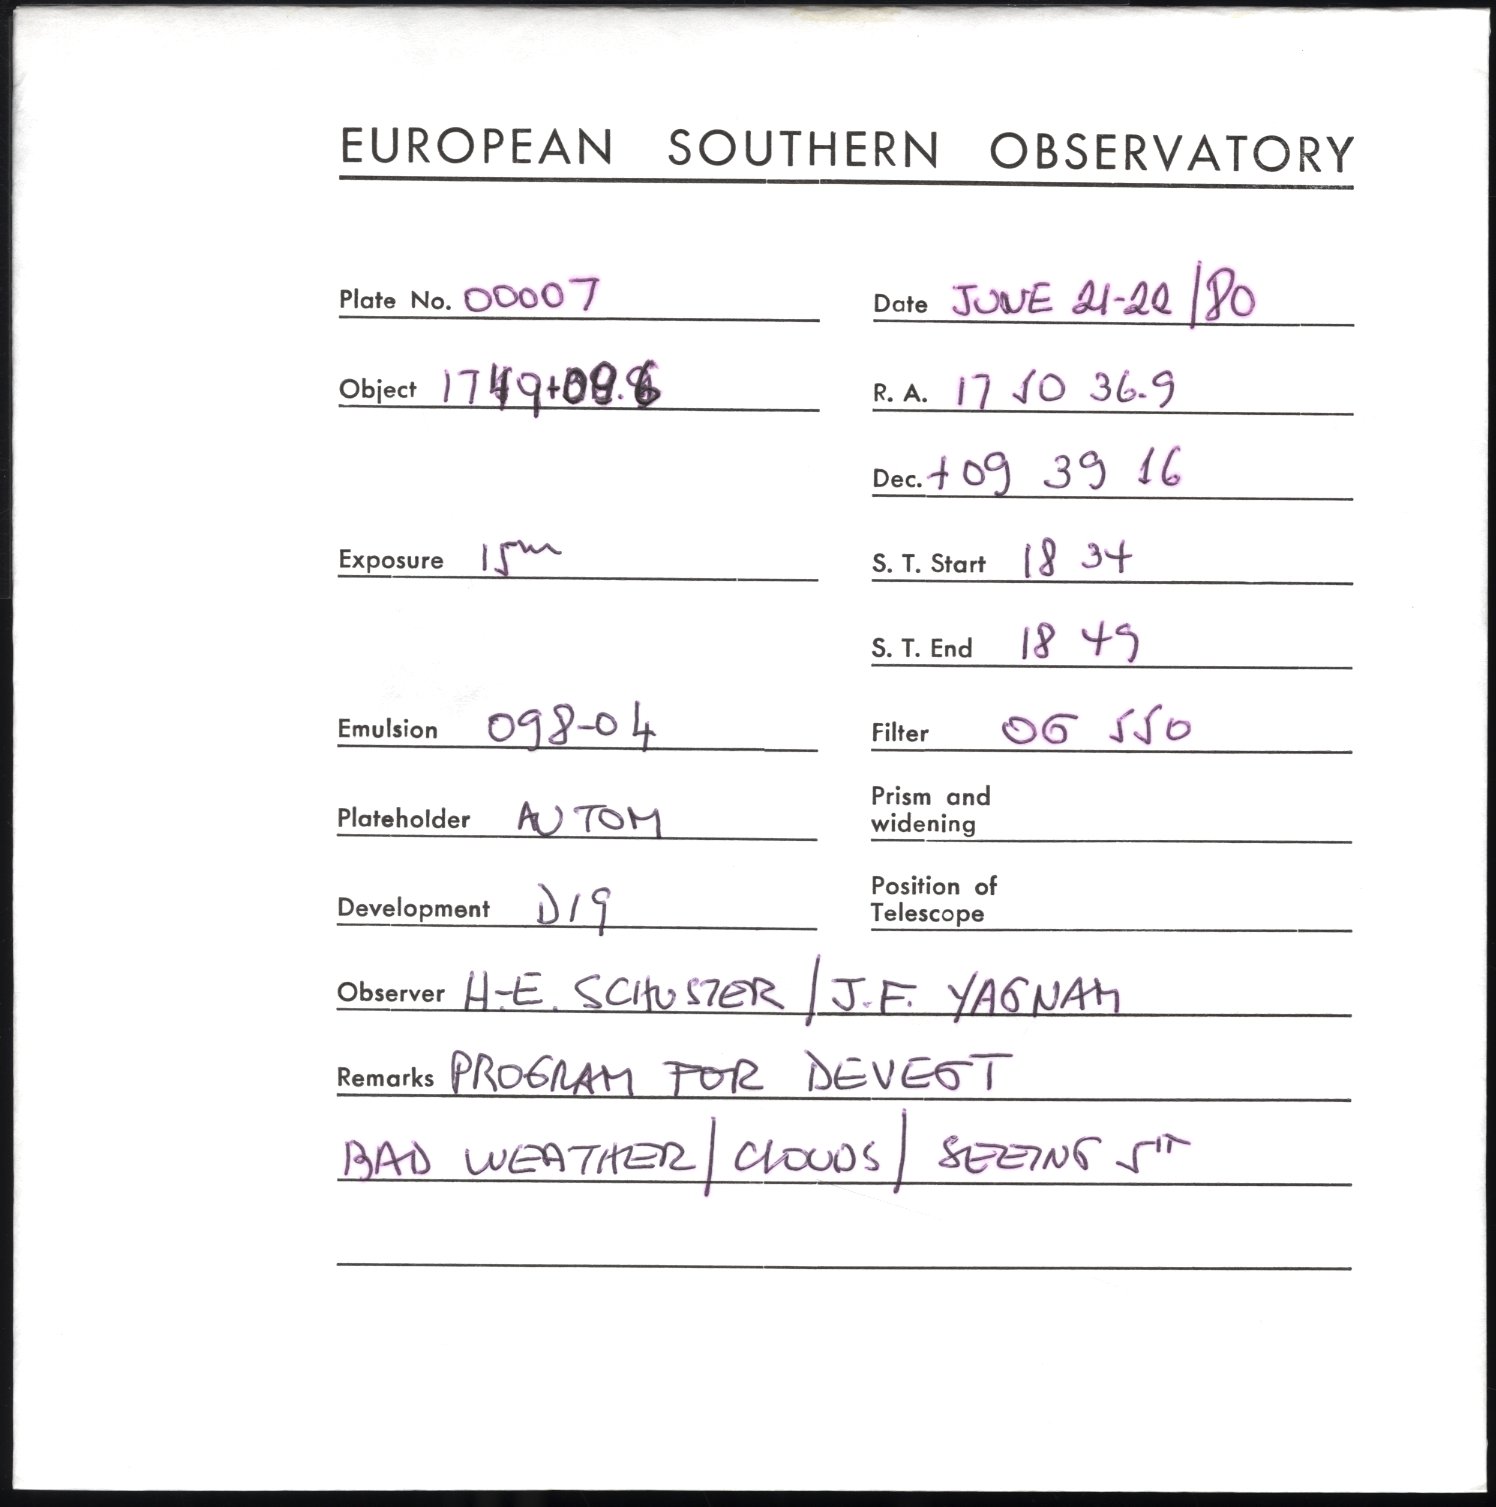 EUROPEAN SOUTHERN OBSERVATORY
Plate No. 00007
Date JUNE 21-22/80
Object 1749+09.6
R. A. 17 50 36.9
Dec. +09 39 16
Exposure 15m
S. T. Start 18 34
S. T. End 18 49
Emulsion 098-04
Filter OG 550
Plateholder AUTOM
Prism and
widening
Development D19
Position of
Telescope
Observer H-E. SCHUSTER / J.F. YAGNAM
Remarks PROGRAM FOR DEVEGT
BAD WEATHER / CLOUDS / SEEING 5"